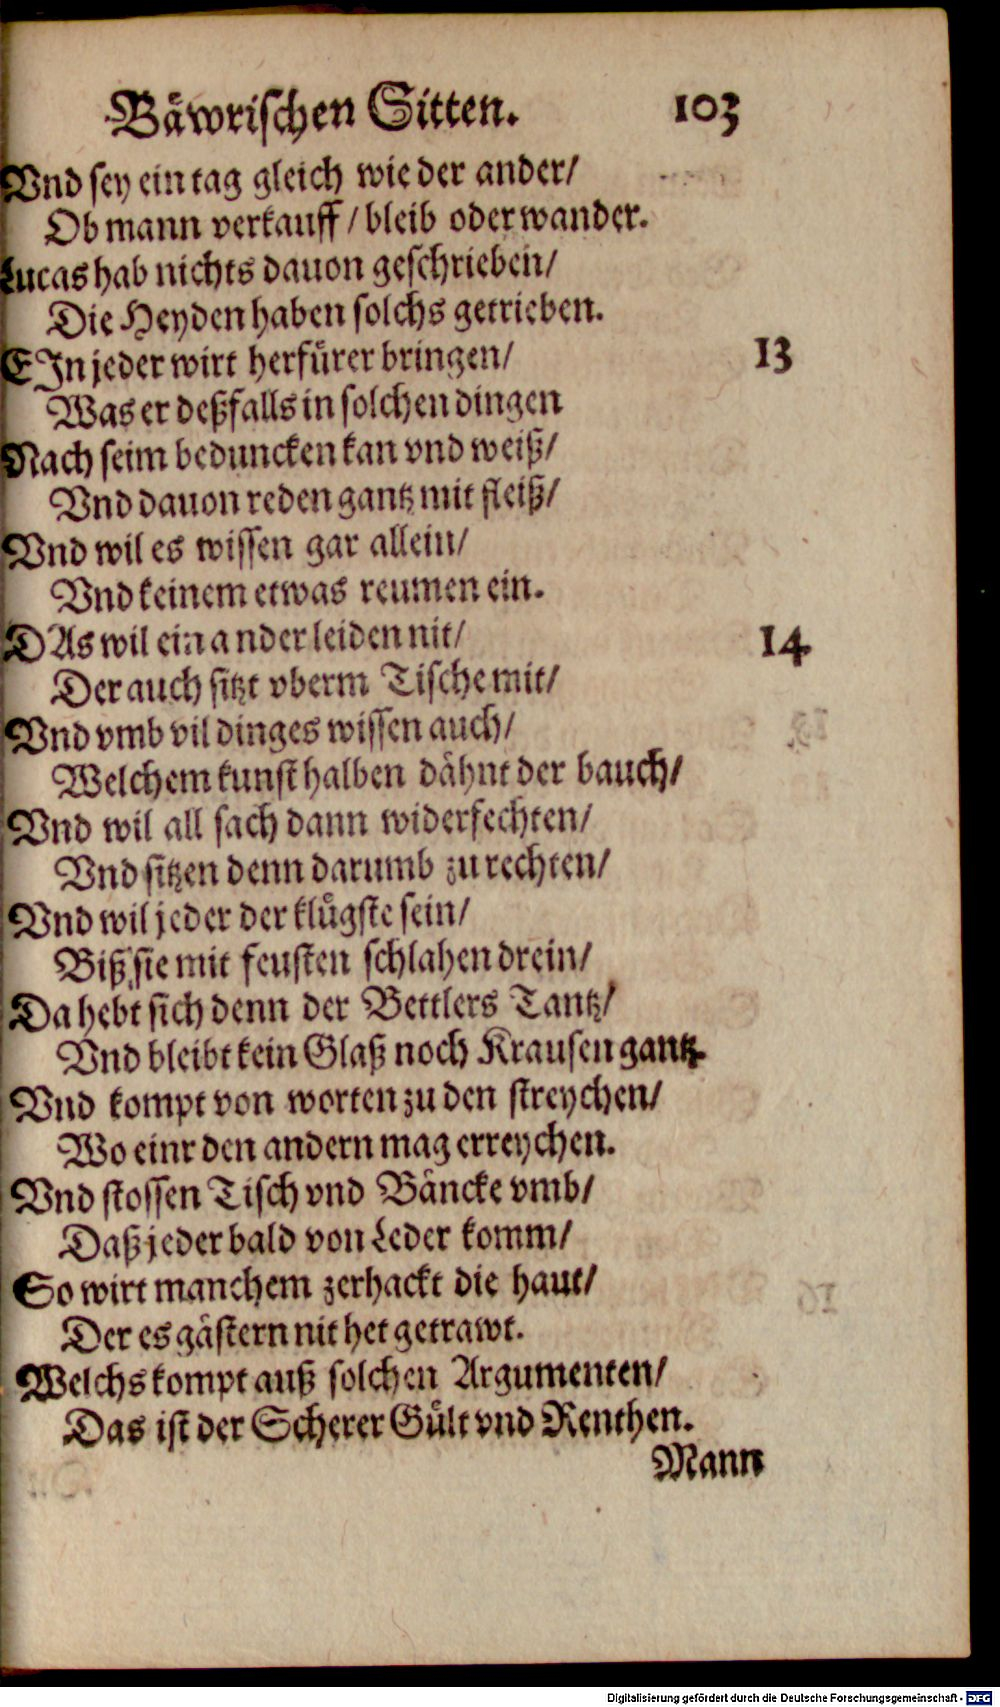 Bäwrischen Sitten. 103
Vnd sey ein tag gleich wie der ander/
Ob mann verkauff / bleib oder wander.
Lucas hab nichts dauon geschrieben/
Die Heyden haben solchs getrieben.
EIn jeder wirt herfürer bringen/ 13
Was er deßfalls in solchen dingen
Nach seim beduncken kan vnd weiß/
Vnd dauon reden gantz mit fleiß/
Vnd wil es wissen gar allein/
Vnd keinem etwas reumen ein.
DAs wil ein ander leiden nit/ 14
Der auch sitzt vberm Tische mit/
Vnd vmb vil dinges wissen auch/
Welchem kunst halben dähnt der bauch/
Vnd wil all sach dann widerfechten/
Vnd sitzen denn darumb zu rechten/
Vnd wil jeder der klůgste sein/
Biß sie mit feusten schlahen drein/
Da hebt sich denn der Bettlers Tantz/
Vnd bleibt kein Glaß noch Krausen gantz.
Vnd kompt von worten zu den streychen/
Wo einr den andern mag erreychen.
Vnd stossen Tisch vnd Bäncke vmb/
Daß jeder bald von Leder komm/
So wirt manchem zerhackt die haut/
Der es gästern nit het getrawt.
Welchs kompt auß solchen Argumenten/
Das ist der Scherer Gůlt vnd Renthen.
Mann
Digitalisierung gefördert durch die Deutsche Forschungsgemeinschaft - DFG